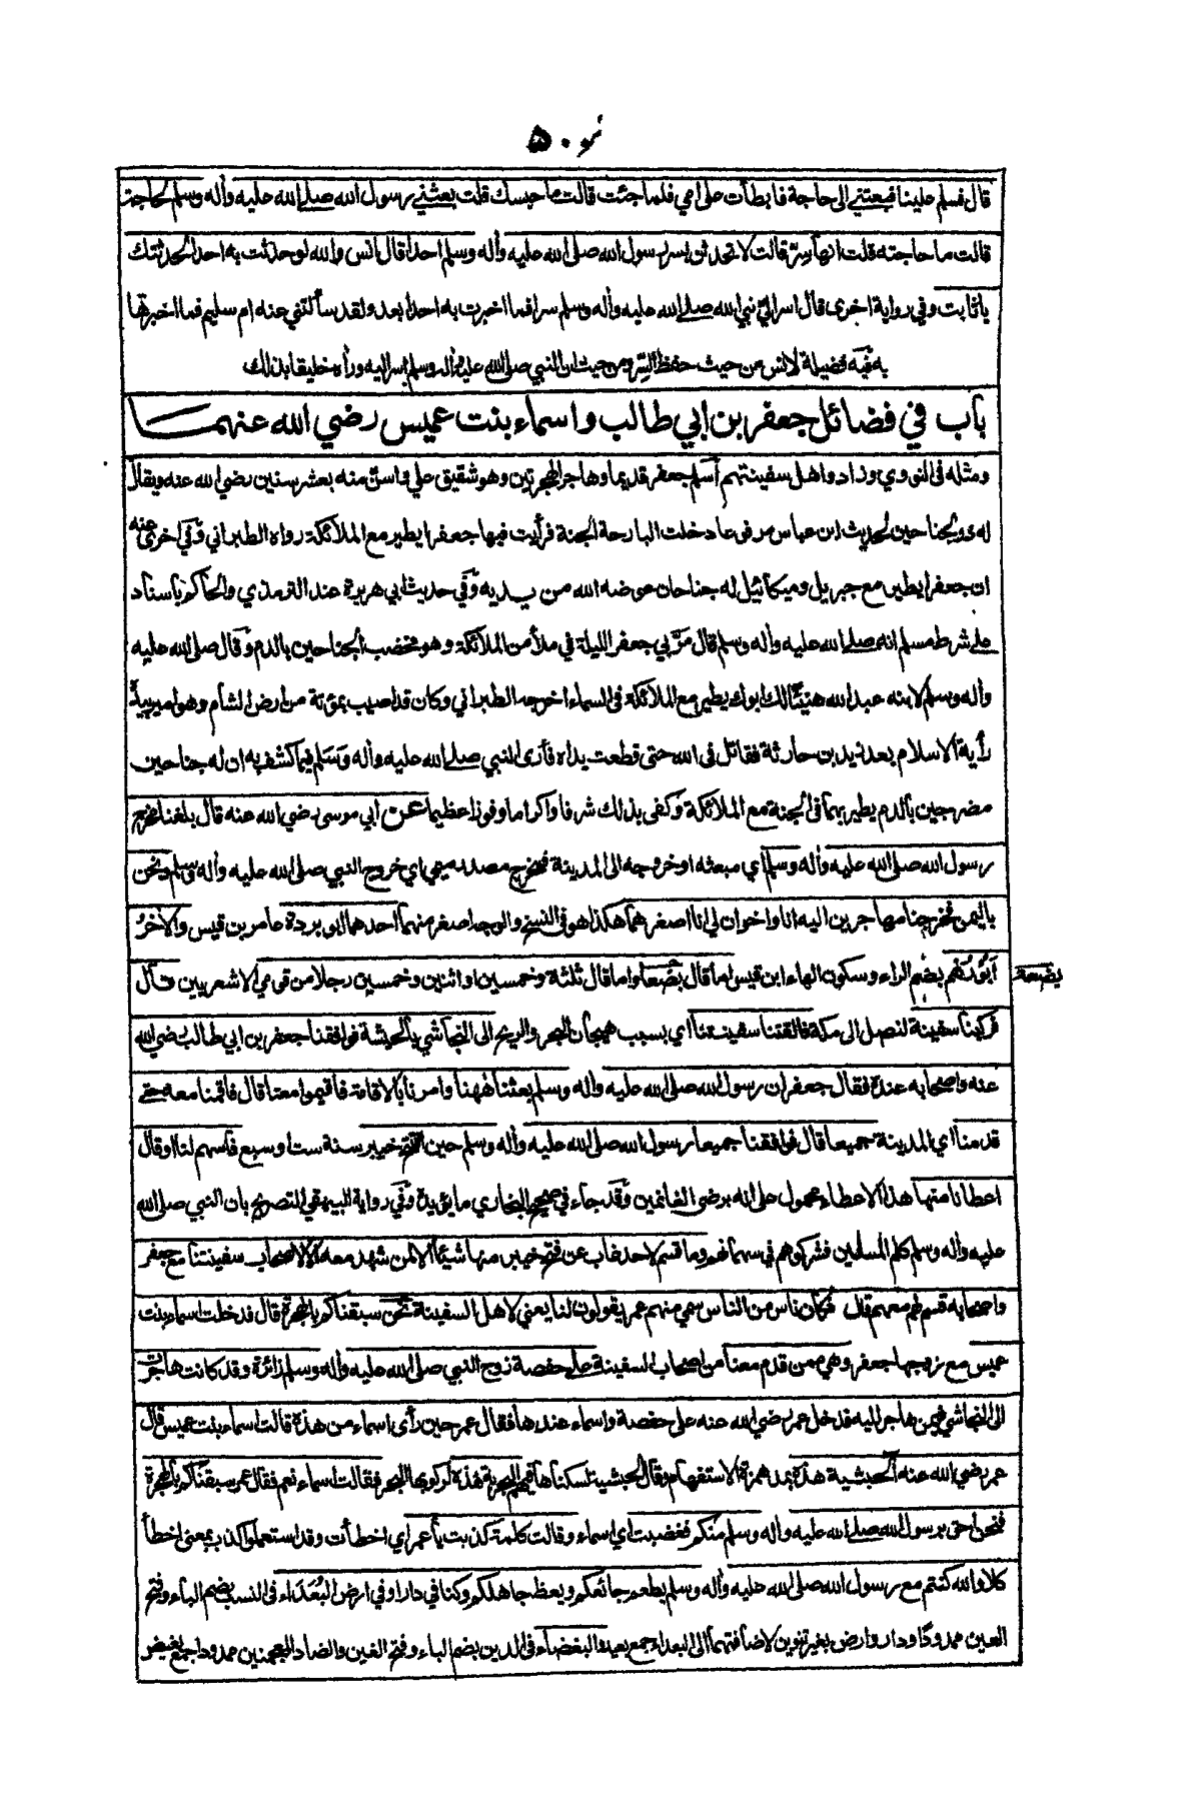 ٥٠٣
قال فسلم علينا فبعثني الى حاجة فابطأت على امي فلما جئت قالت ما حبسك قلت بعثني رسول الله صلى الله عليه وأله وسلم لحاجته
قالت ما حاجته قلت انها سر قالت لا تحدثن بسر رسول الله صلى الله عليه وأله وسلم احدا قال انس والله لو حدثت به احدا لحدثتك
يا ثابت وفي رواية اخرى قال اسر الي نبي الله صلى الله عليه وأله وسلم سرا فما اخبرت به احدا بعد ولقد سألتني عنه ام سليم فما اخبرتها
به فيه فضيلة لانس من حيث حفظ السر ومن حيث ان النبي صلى الله عليه وأله وسلم اسر اليه ورأه خليقا بذلك
باب في فضائل جعفر بن ابي طالب واسماء بنت عميس رضي الله عنهما
ومثله في النووي وزاد واهل سفينتهم أسلم جعفر قديما وهاجر الهجرتين وهو شقيق علي واسن منه بعشر سنين رضي الله عنه ويقال
له ذو الجناحين لحديث ابن عباس مرفوعا دخلت البارحة الجنة فرأيت فيها جعفرا يطير مع الملائكة رواه الطبراني وفي اخرى عنه
ان جعفرا يطير مع جبريل وميكائيل له جناحان عوضه الله من يديه وفي حديث ابي هريرة عند الترمذي والحاكم بأسناد
على شرط مسلم انه صلى الله عليه وأله وسلم قال مر بي جعفر الليلة في ملأ من الملائكة وهو مخضب الجناحين بالدم وقال صلى الله عليه
وأله وسلم لابنه عبد الله هنيئا لك ابوك يطير مع الملائكة في السماء اخرجه الطبراني وكان قد اصيب بمؤتة من ارض الشأم وهو امير بيده
رأية الاسلام بعد زيد بن حارثة فقاتل في الله حتى قطعت يداه فأرى النبي صلى الله عليه وأله وسلم فيما كشف به ان له جناحين
مضرجين بالدم يطير بهما في الجنة مع الملائكة وكفى بذلك شرفا واكراما وفوزا عظيما عن ابي موسى رضي الله عنه قال بلغنا مخرج
رسول الله صلى الله عليه وأله وسلم اي مبعثه او خروجه الى المدينة فمخرج مصدر ميمي اي خروج النبي صلى الله عليه وأله وسلم ونحن
باليمن فخرجنا مهاجرين اليه انا واخوان لي انا اصغرهما هكذا هو في النسخ والوجه اصغر منهما أحدهما ابو بردة عامر بن قيس والأخر
ابو رهم بضم الراء وسكون الهاء ابن قيس اما قال بضعا واما قال ثلثة وخمسين او اثنين وخمسين رجلا من قومي الاشعريين قال
بضعة
فركبنا سفينة لنصل الى مكة فالقتنا سفينتنا اي بسبب هيجان البحر والريح الى النجاشي بالحبشة فوافقنا جعفر بن ابي طالب رضي الله
عنه واصحابه عنده فقال جعفر ان رسول الله صلى الله عليه وأله وسلم بعثنا ههنا وامرنا بالاقامة فأقيموا معنا قال فاقمنا معه حتى
قدمنا اي المدينة جميعا قال فوافقنا جميعا رسول الله صلى الله عليه وأله وسلم حين افتتح خيبر سنة ست او سبع فأسهم لنا او قال
اعطانا منها هذا الاعطاء محمول على انه برضى الغانمين وقد جاء في صحيح البخاري ما يؤيده وفي رواية البيهقي التصريح بان النبي صلى الله
عليه وأله وسلم كلم المسلمين فشركوهم في سهمانهم وما قسم لاحد غاب عن فتح خيبر منها شيئا الا لمن شهد معه الا لاصحاب سفينتنا مع جعفر
واصحابه قسم لهم معهم قال فكان ناس من الناس سمي منهم عمر يقولون لنا يعني لاهل السفينة نحن سبقناكم بالهجرة قال فدخلت اسماء بنت
عميس مع زوجها جعفر وهي ممن قدم معنا من اصحاب السفينة على حفصة زوج النبي صلى الله عليه وأله وسلم زائرة وقد كانت هاجرت
الى النجاشي فيمن هاجر اليه فدخل عمر رضي الله عنه على حفصة واسماء عندها فقال عمر حين رأى اسماء من هذه قالت اسماء بنت عميس قال
عمر رضي الله عنه الحبشية هذه بمد همزة الاستفهام وقال الحبشية لسكناها فيهم البحرية هذه لركوبها البحر فقالت اسماء نعم فقال عمر سبقناكم بالهجرة
فنحن احق برسول الله صلى الله عليه وأله وسلم منكم فغضبت اي اسماء وقالت كلمة كذبت يأ عمر اي اخطأت وقد استعملوا كذب بمعنى اخطأ
كلا والله كنتم مع رسول الله صلى الله عليه وأله وسلم يطعم جائعكم ويعظ جاهلكم وكنا في دار او في ارض البعداء في النسب بضم الباء وفتح
العين ممدودا ودار وارض بغير تنوين لاضافتهما الى البعداء جمع بعيد والبغضاء في الدين بضم الباء وفتح الغين والضاد المعجمتين ممدودا جمع بغيض